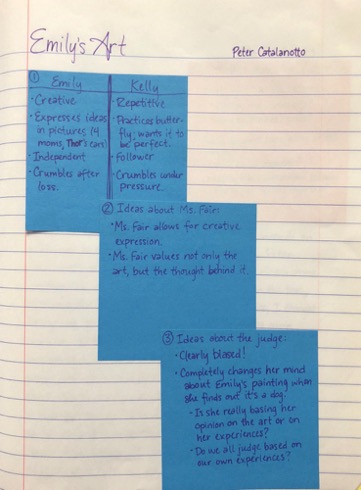 Emily's Art
Peter Catalanotto
① Emily
· Creative
· Expresses ideas
in pictures (4
moms, Thor's ears)
· Independent
· Crumbles after
loss.
Kelly
· Repetitive
· Practices butter-
fly; wants it to
be perfect.
· Follower
· Crumbles under
pressure.
② Ideas about Ms. Fair:
· Ms. Fair allows for creative
expression.
· Ms. Fair values not only the
art, but the thought behind it.
③ Ideas about the judge:
· Clearly biased!
· Completely changes her mind
about Emily's painting when
she finds out it's a dog.
- Is she really basing her
opinion on the art or on
her experiences?
- Do we all judge based on
our own experiences?